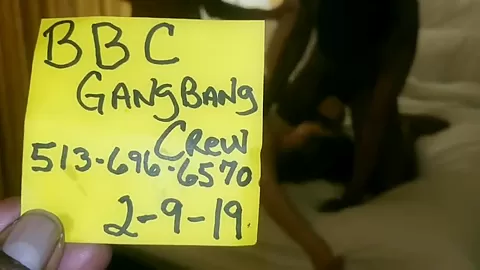 BBC
GANGBANG
CREW
513-696-6570
2-9-19